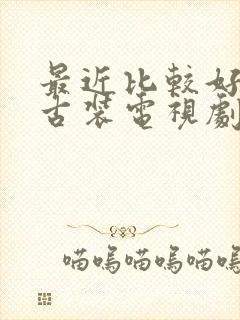 最近比較好
古裝電視劇
喵嗚喵嗚喵嗚